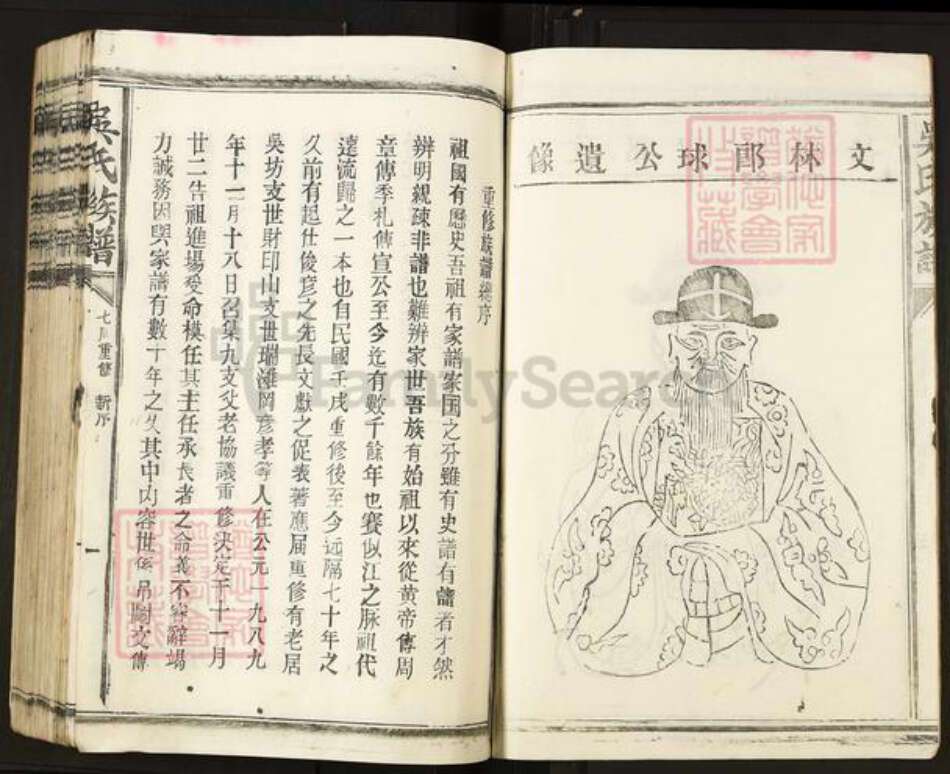 文林郎球公遺像
重修族譜總序
祖國有歷史吾祖有家譜家国之分雖有史譜有譜者不然
辨明親疎非譜也難辨家世吾族有始祖以來從黄帝傳周
章傳季札傳宣公至今迄有數千餘年也賽似江之脉祖代
遠流歸之一本也自民國壬戌重修後至今远隔七十年之
久前有起仕俊彦之先長文獻之促表著應届重修有老居
吳坊支世財印山支世瑞灘岡彦孝等人在公元一九八九
年十一月十八日召集九支父老協議重修決定于十一月
廿二告祖進場受命模任其主任承長者之命義不容辭竭
力誠務因與家譜有數十年之久其中内容世係吊圖文傳
吳氏族譜
七届重修
新序
一
吳氏族譜
FamilySearch